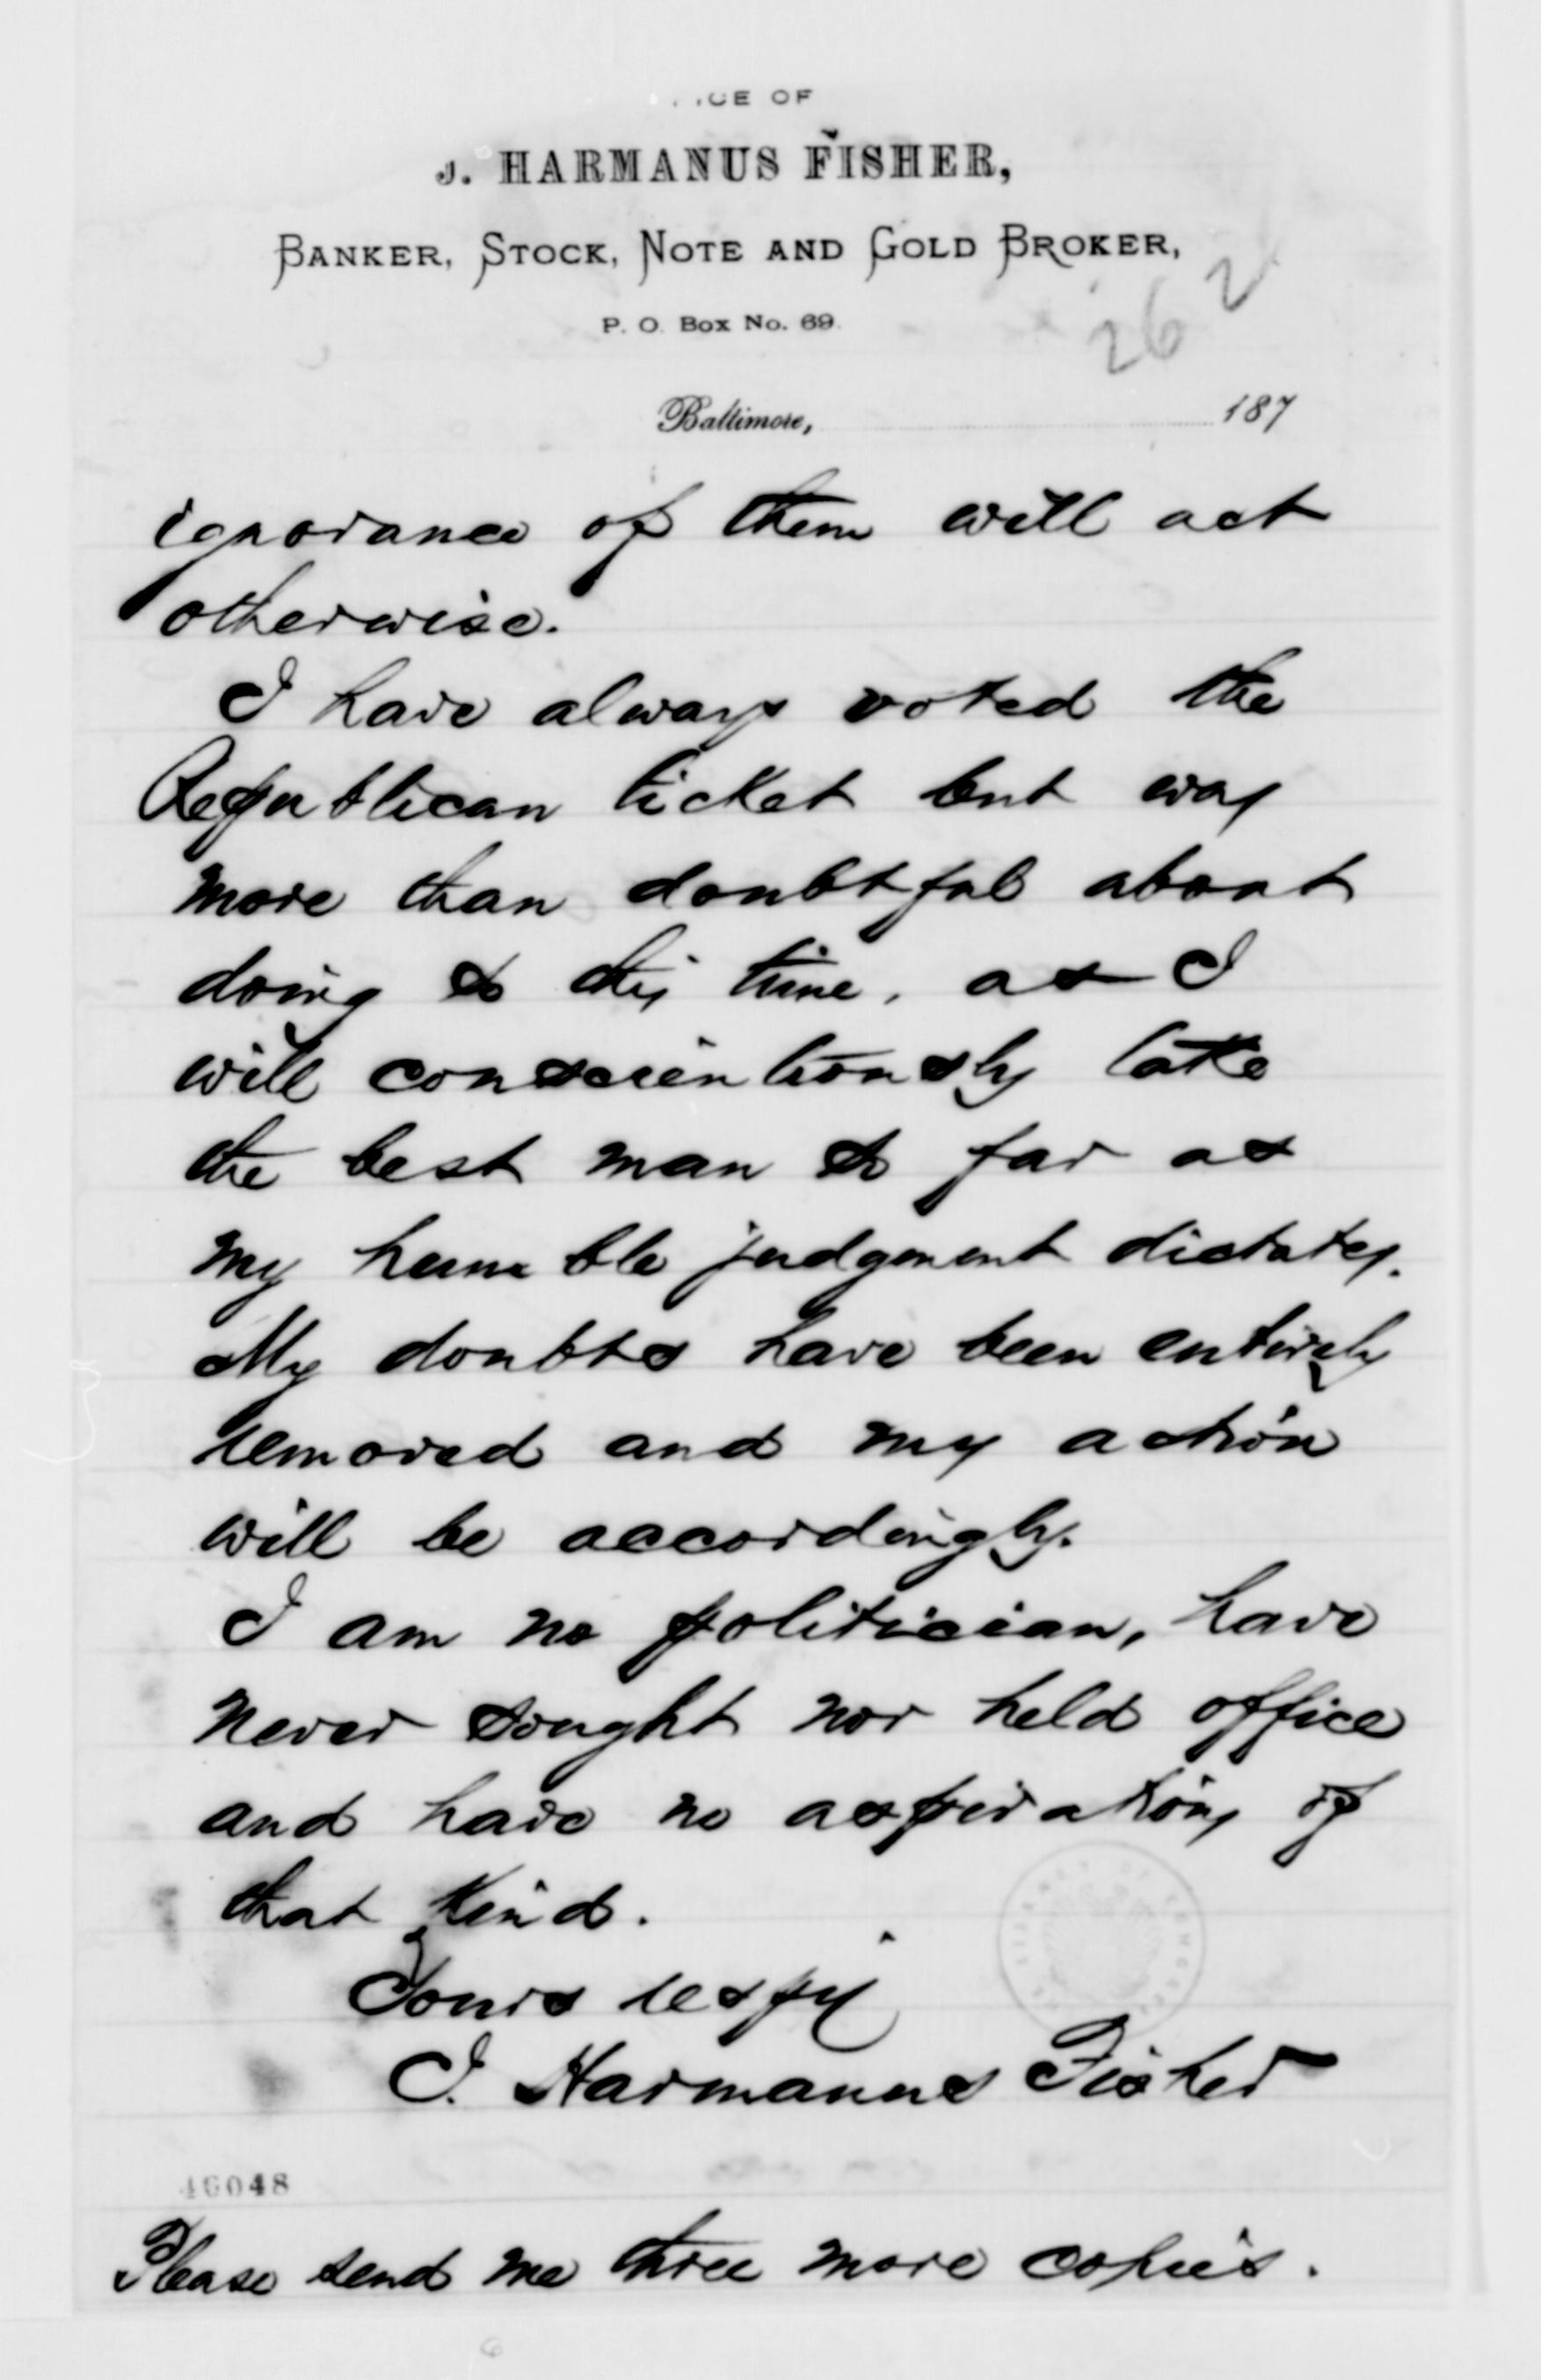 ICE OF
J. HARMANUS FISHER,
BANKER, STOCK, NOTE AND GOLD BROKER,
P. O. Box No. 69.
262
Baltimore, 187
ignorance of them will act
otherwise.
I have always voted the
Republican ticket but was
more than doubtful about
doing so this time, as I
will conscientiously take
the best man so far as
my humble judgment dictates.
My doubts have been entirely
removed and my action
will be accordingly.
I am no politician, have
never sought nor held office
and have no aspirations of
that kind.
Yours respy
J. Harmanus Fisher
16048
Please send me three more copies.